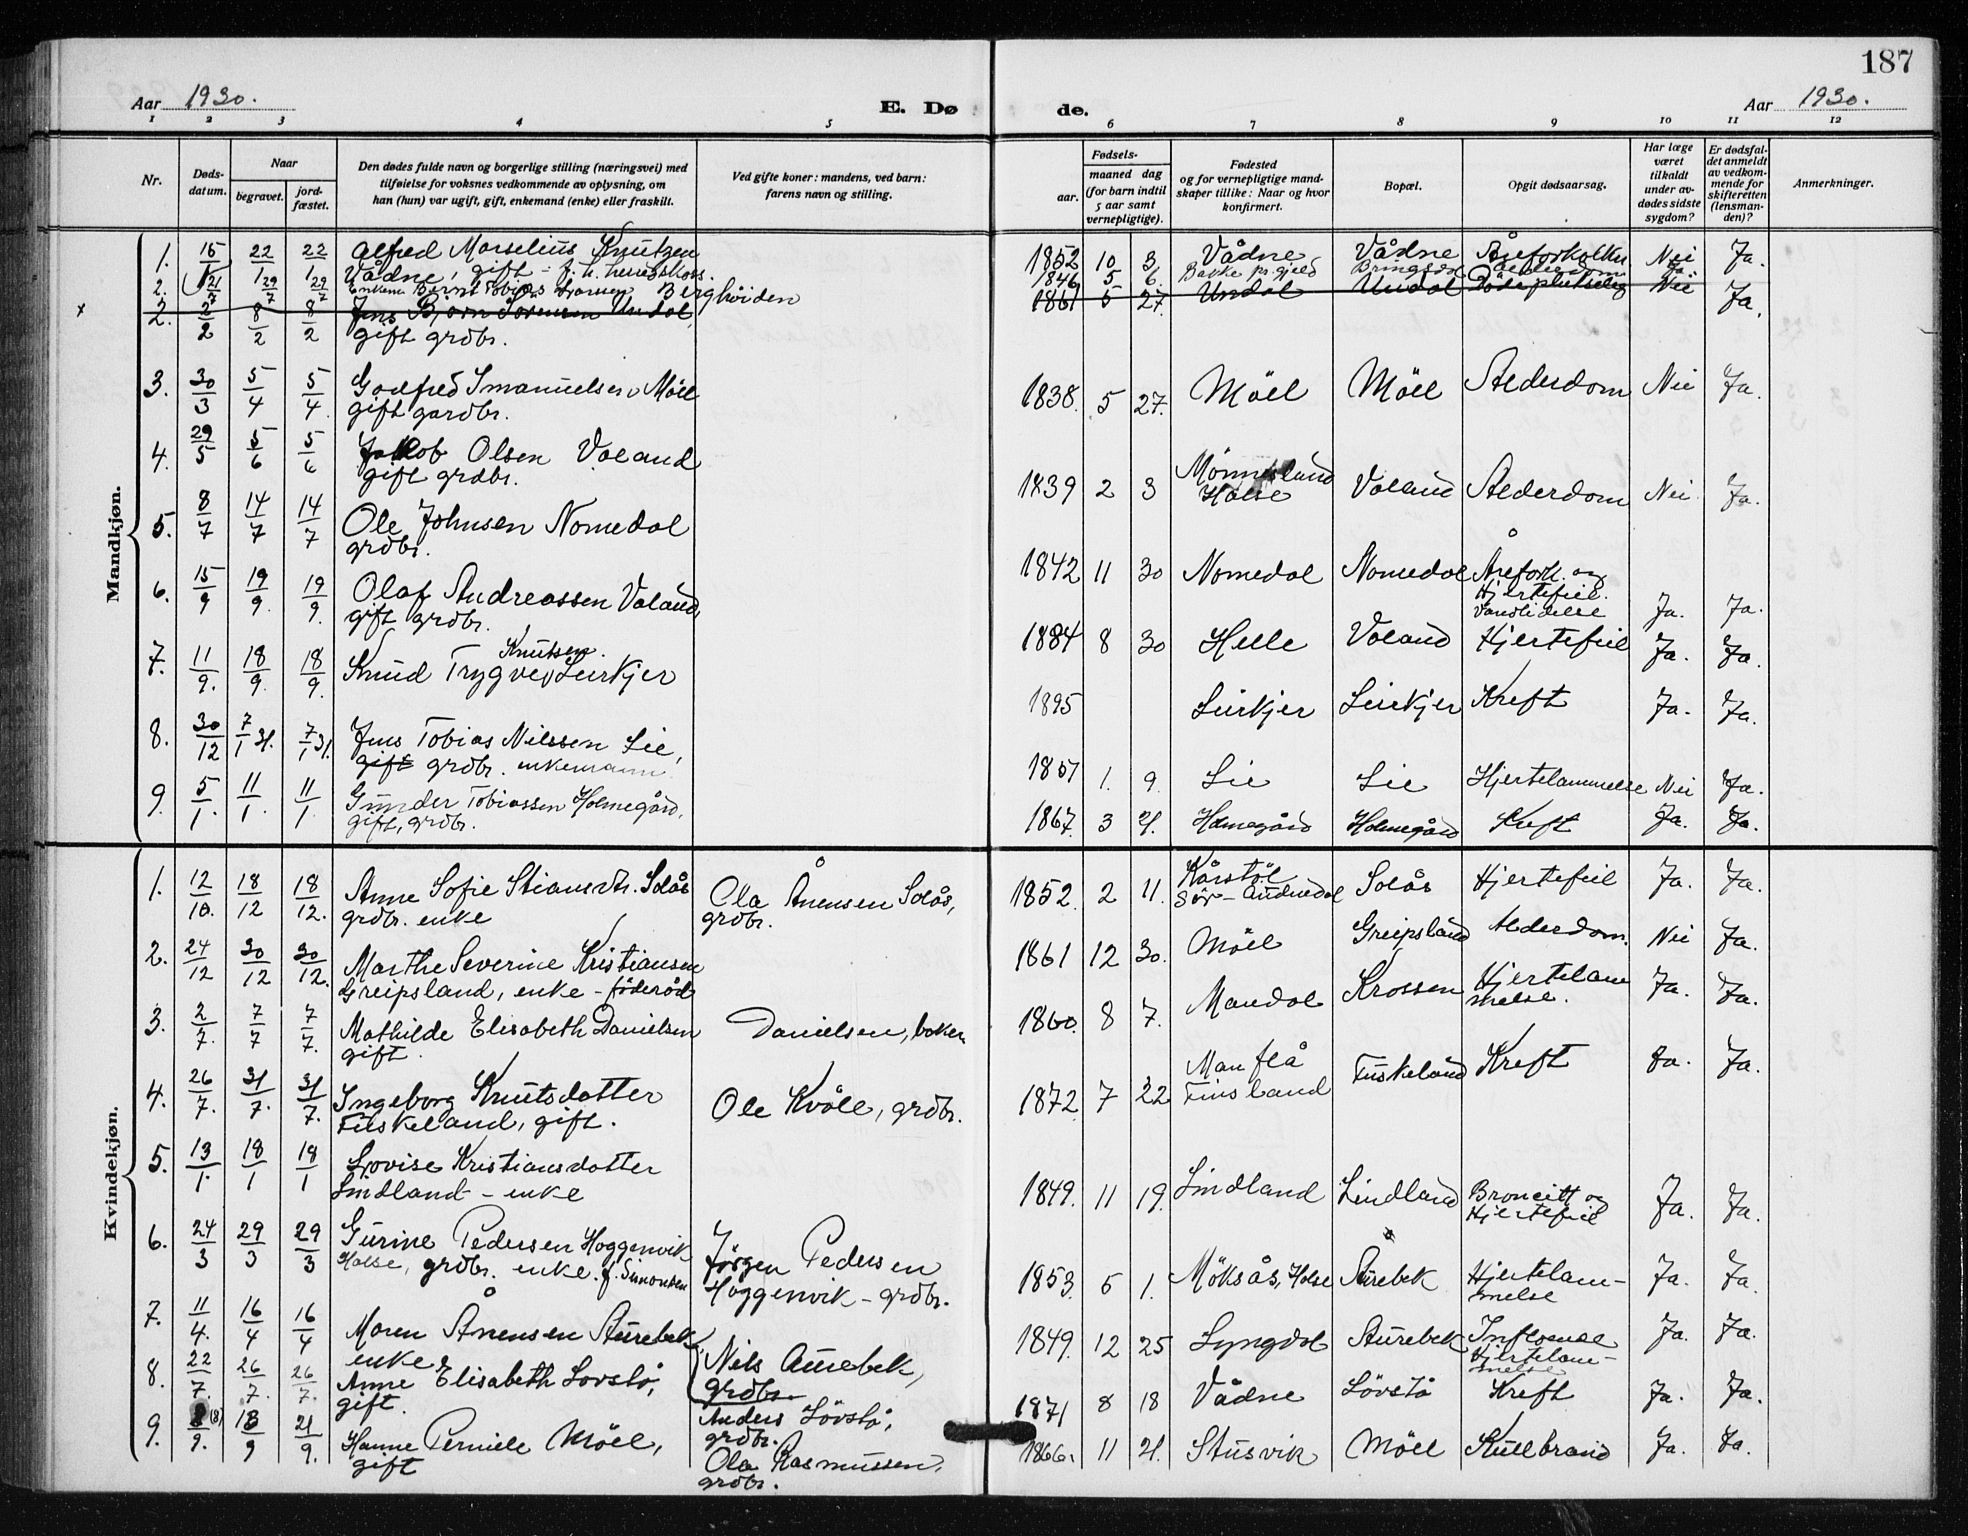 187
Aar 1930. E. Dø de. Aar 1930.
1 2 3 4 5 6 7 8 9 10 11 12
Nr.
Døds-
datum.
Naar
begravet.
jord-
fæstet.
Den dødes fulde navn og borgerlige stilling (næringsvei) med
tilføielse for voksnes vedkommende av oplysning, om
han (hun) var ugift, gift, enkemand (enke) eller fraskilt.
Ved gifte koner: mandens, ved barn:
farens navn og stilling.
Fødsels-
aar.
maaned dag
(for barn indtil
5 aar samt
vernepligtige).
Fødested
og for vernepligtige mand-
skaper tillike: Naar og hvor
konfirmert.
Bopæl.
Opgit dødsaarsag.
Har læge
været
tilkaldt
under av-
dødes sidste
sygdom?
Er dødsfal-
det anmeldt
av vedkom-
mende for
skifteretten
(lensman-
den)?
Anmerkninger.
Mandkjøn.
1. 15/1 22/1 22/1 Alfred Marselius Knutzen 1852 10 3 Vådne Vådne Åreforkalkn Nei Ja.
Vådne, gift - f. h.
2. 21/7 29/7 29/7 Enkem Bernt Tobias Larssen Berghöiden 1846 5 6. Bakke pr.gjeld Bringsdal Alderdom Ja
x 2. 2/2 8/2 8/2 Jens Björn Sörensen Undal, 1861 5 27. Undal Undal Döde plutselig Nei Ja.
gift grdbr.
3. 30/3 5/4 5/4 Godfred Imanuelsen Möll 1838. 5 27. Möll Möll Alderdom Nei Ja.
gift gardbr.
4. 29/5 5/6 5/6 Jakob Olsen Valand 1839 2 3 Mönnesland Valand Alderdom Nei Ja.
gift grdbr. Halse
5. 8/7 14/7 14/7 Ole Johnsen Nomedal 1842 11 30 Nomedal Nomedal Årefork. og
grdbr. Hjertefeil.
Vandlidelse Ja. Ja.
6. 15/9 19/9. 19/9. Olaf Andreassen Valand, 1884 8 30 Helle Valand Hjertefeil Ja. Ja.
gift grdbr.
7. 11/9. 18/9. 18/9. Knud Trygve Knutsen. Leirkjer 1895 Leirkjer Leirkjer Kreft Ja. Ja.
8. 30/12 7/1 31. 7/1 31. Jens Tobias Nilssen Lie, 1857 1. 9. Lie Lie Hjertelammelse Nei Ja.
gift grdbr. enkemann.
9. 5/1. 11/1. 11/1. Gunder Tobiassen Holmegård, 1867. 3 21. Holmegård Holmegård Kreft Ja. Ja.
gift, grdbr.
Kvindekjøn.
1. 12/10. 18/12 18/12. Anne Sofie Stiansdtr. Solås Ola Ånensen Solås, 1852. 2 11. Kårstöl Solås Hjertefeil Ja. Ja.
grdbr. enke grdbr. Sör-Audnedal
2. 24/12 30/12 30/12. Marthe Severine Kristiansen 1861 12 30. Möll Greipsland Alderdom. Nei Ja.
Greipsland, enke - föderåd
3. 2/7. 7/7 7/7. Mathilde Elisabeth Danielsen Danielsen, baker 1860. 8 7. Mandal Krossen Hjertelam Ja. Ja.
gift. melse.
4. 26/7. 31/7. 31/7. Ingeborg Knutsdatter Ole Kvåle, grdbr. 1872 7 22 Manflå Tuskeland Kreft Ja. Ja.
Tuskeland, gift. Finsland
5. 13/1. 18/1 18/1 Lovise Kristiansdatter 1849. 11 19. Lindland Lindland Broncitt og Ja. Ja.
Lindland - enke Hjertefeil
6. 24/3 29/3 29/3 Gurine Pedersen Hoggenvik Jörgen Pedersen 1853. 5 1. Möksås, Halse Aurebek Hjertelam- Ja. Ja.
Halse, grdbr. enke. f. Simonsen Hoggenvik - grdbr. melse
7. 11/4. 16/4 16/4 Maren Ånensen Aurebek Nils Aurebek, 1849. 12 25 Lyngdal Aurebek Influensa Ja. Ja.
enke grdbr. Hjertelam-
melse
8. 22/7. 26/7. 26/7. Anne Elisabeth Lovstö, Anders Lövstö, 1871 8 18 Vådne Lövstö Kreft Ja. Ja.
gift. grdbr.
9. 8/9. (8) 13/9 21/9. Hanne Pernille Möll, Ola Rasmussen, 1866. 11 21. Stusvik Möll Kullbrand Ja. Ja.
gift grdbr.